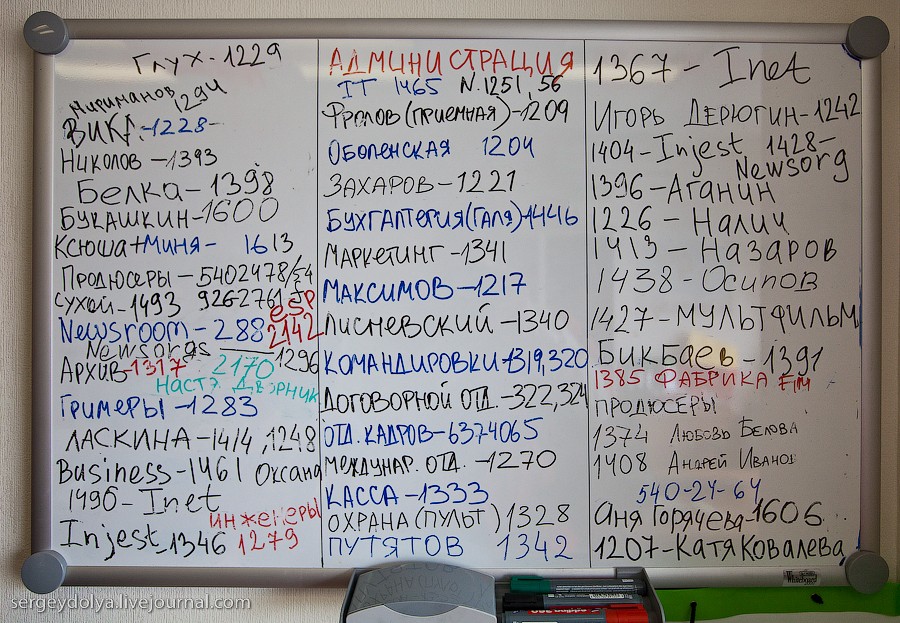 Глух - 1229
Мириманов 1294
ВИКА - 1228 -
Николов - 1393
Белка - 1398
Букашкин - 1600
Ксюша + Миня - 1613
Продюсеры - 5402478/54
Сухой - 1493 926-2761
ESP
Newsroom - 288 2142
Newsorgs 1296
Архив - 1317 2170
Настя Дворник
Гримеры - 1283
ЛАСКИНА - 1414, 1248
Business - 1461 Оксана
1490 - Inet
инженеры
Injest - 1346 1279
АДМИНИСТРАЦИЯ
IT 1465 N. 1251, 56
Фролов (приемная) - 1209
Оболенская 1204
ЗАХАРОВ - 1221
Бухгалтерия (Галя) - 1446
Маркетинг - 1341
Максимов - 1217
Лисневский - 1340
Командировки - 1319, 320
Договорной отд. - 322, 324
отд. кадров - 6374065
междунар. отд. - 1270
КАССА - 1333
ОХРАНА (ПУЛЬТ) 1328
ПУТЯТОВ 1342
1367 - Inet
Игорь Дерюгин - 1242
1404 - Injest 1428 -
Newsorg
1396 - Аганин
1226 - Налич
1413 - Назаров
1438 - Осипов
1427 - МУЛЬТФИЛЬМ
Бикбаев - 1391
1385 ФАБРИКА FM
ПРОДЮСЕРЫ
1374 Любовь Белова
1408 Андрей Иванов
540-24-64
Аня Горячева - 1606
1207 - Катя Ковалева
sergeydolya.livejournal.com